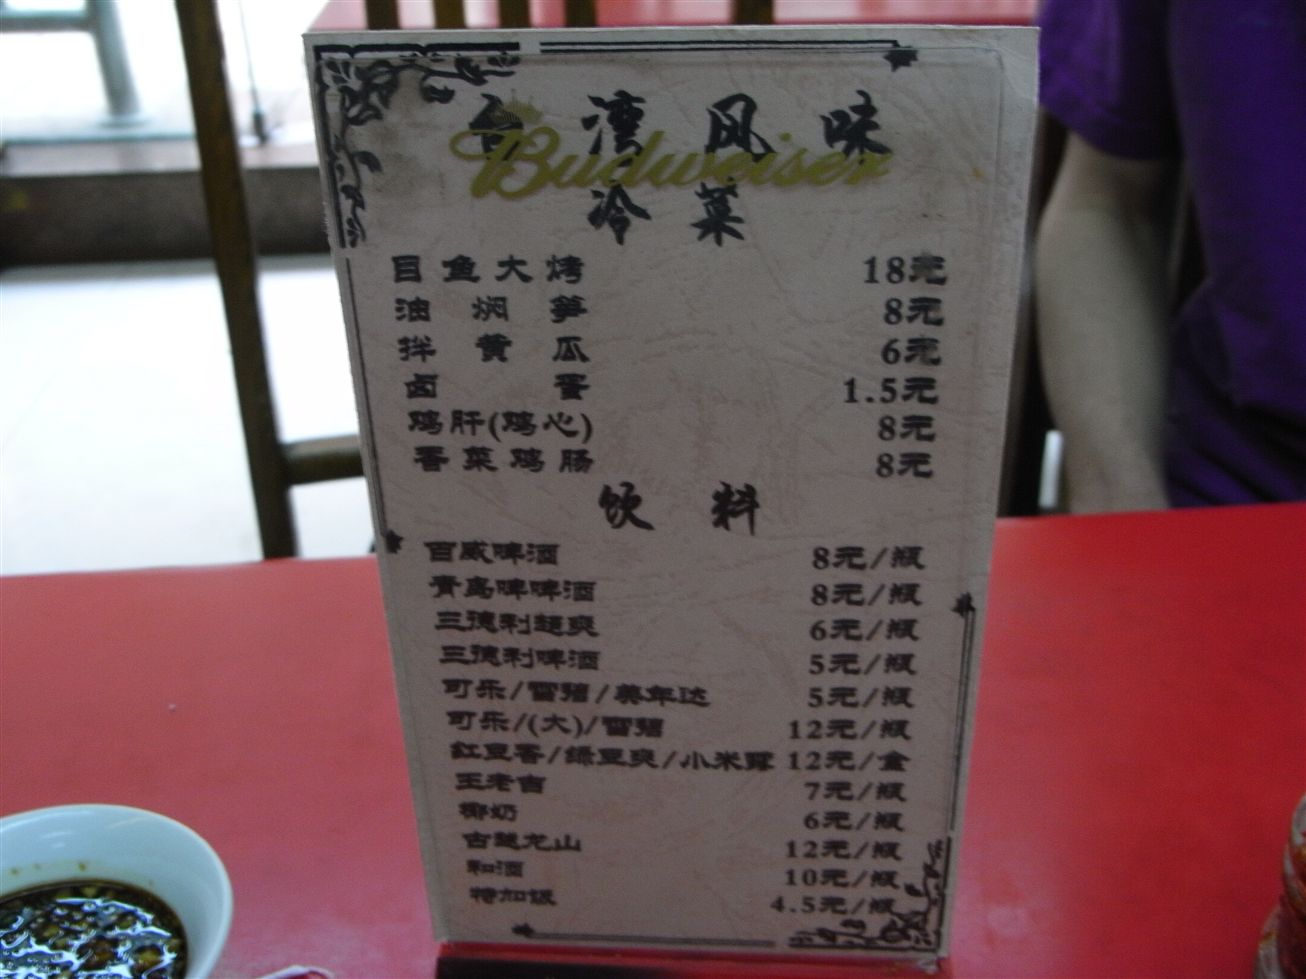 台湾风味
Budweiser
冷菜
目鱼大烤 18元
油焖笋 8元
拌黄瓜 6元
卤蛋 1.5元
鸡肝(鸡心) 8元
香菜鸡肠 8元
饮料
百威啤酒 8元/瓶
青岛啤啤酒 8元/瓶
三德利超爽 6元/瓶
三德利啤酒 5元/瓶
可乐/雪碧/美年达 5元/瓶
可乐/(大)/雪碧 12元/瓶
红豆香/绿豆爽/小米露 12元/盒
王老吉 7元/瓶
椰奶 6元/瓶
古越龙山 12元/瓶
和酒 10元/瓶
特加饭 4.5元/瓶